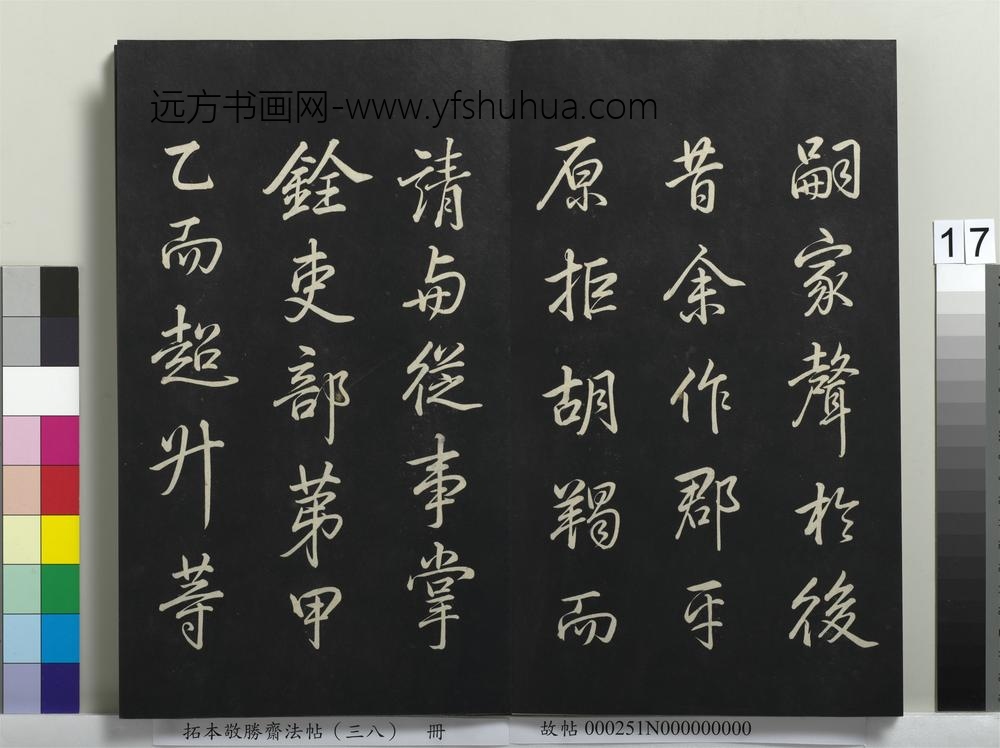 远方书画网-www.yfshuhua.com
嗣家聲於後
昔余作郡平
原拒胡羯而
請与從事掌
銓吏部第甲
乙而超升等
17
拓本敬勝齋法帖（三八） 冊
故帖 000251N000000000